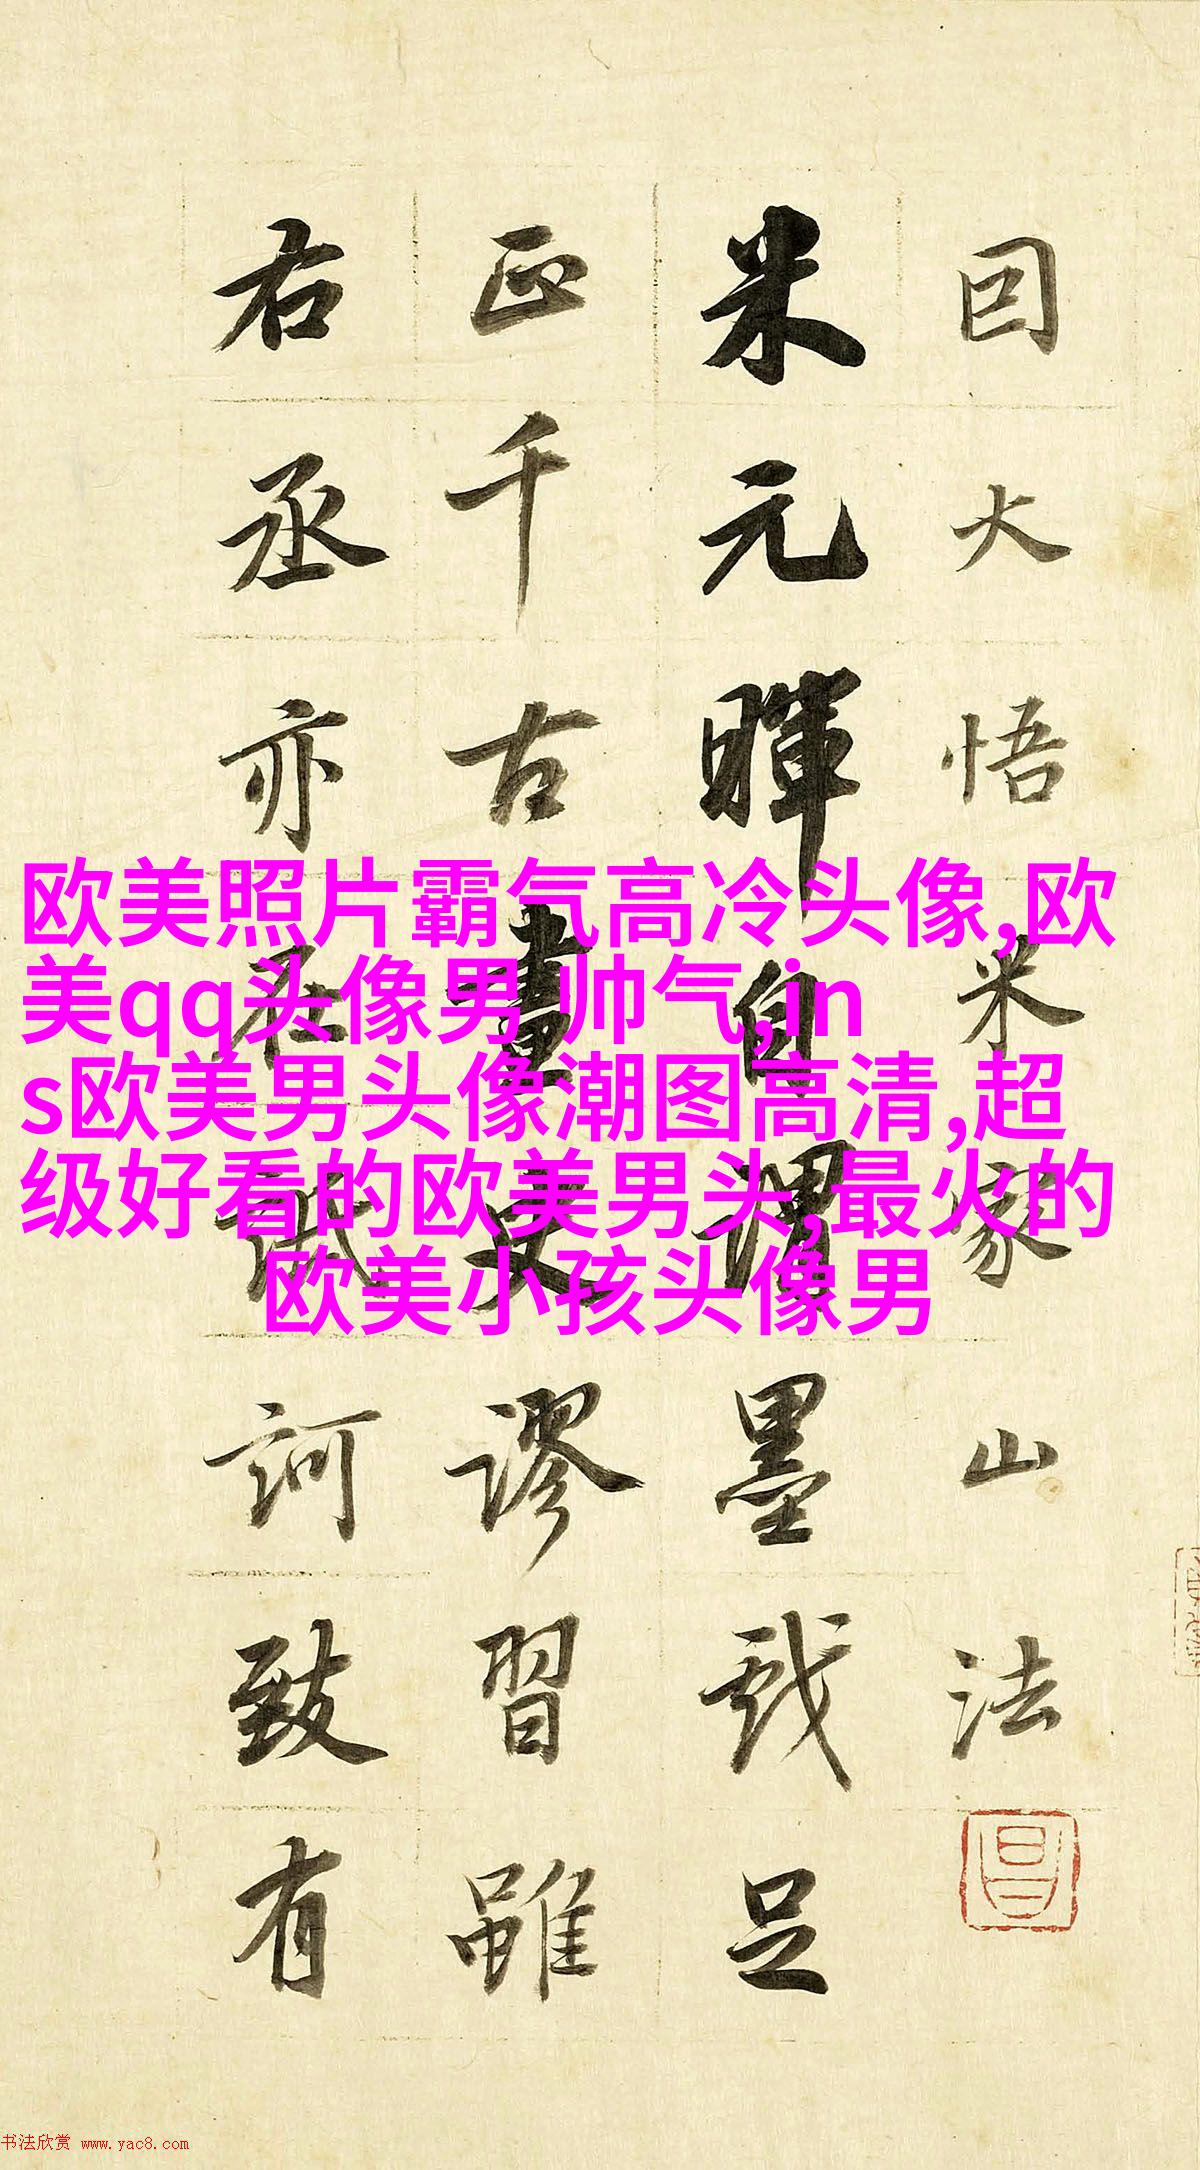 囙大悟米家山法
米元暉自謂墨戲足
正千古畫史謬習雖
右丞亦在詆訶致有
欧美照片霸气高冷头像,欧
美qq头像男 帅气,in
s欧美男头像潮图高清,超
级好看的欧美男头,最火的
欧美小孩头像男
昌
书法欣赏 www.yac8.com